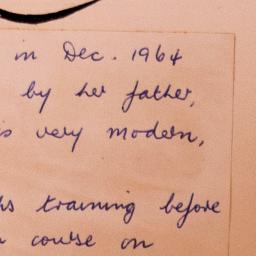 in Dec. 1964
by her father,
is very modern,
training before
course on